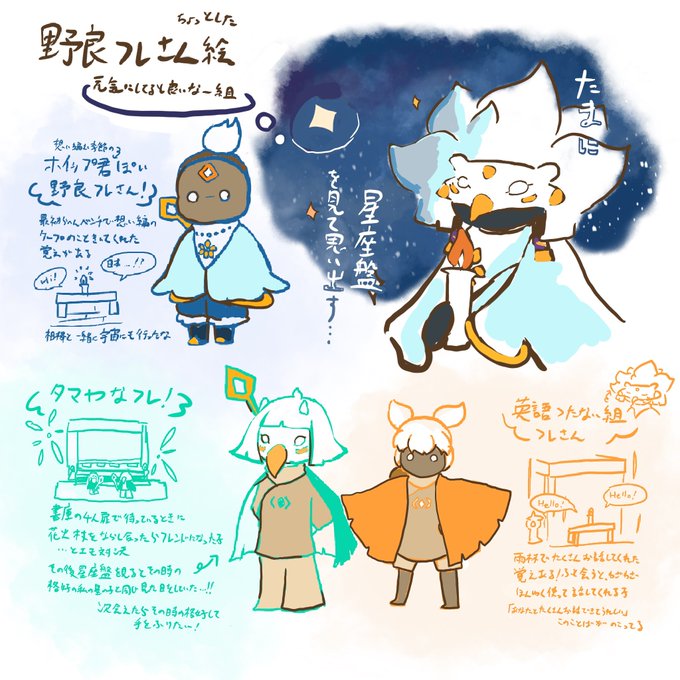 ちょっとした
野良フレさん絵
元気にしてると良いな一組
たまに
星座盤
を見て思い出す…
想い編む季節の
ホイップ君ぽい
野良フレさん！
ベンチで想い編の
ケープのこときいてくれた
覚えがある
Hi!
日本…!?
相棒と一緒に宇宙にも行ったな
タマやなフレ！
書庫の4人扉で待っているときに
花火杖をならし合ったらフレンドになった子
…とエモ対決
その後星座盤観るとその時の
格好の私の星の子と同じ見た目をしていた…!!
次会えたらその時の格好して
手をふりたい！
英語つたない組
フレさん
Hello!
Hello!
雨林でたくさんお話してくれた
覚えある！
ほんやく使って話してくれる子
「あなたとたくさんお話できてうれしい」
このことばがのこってる